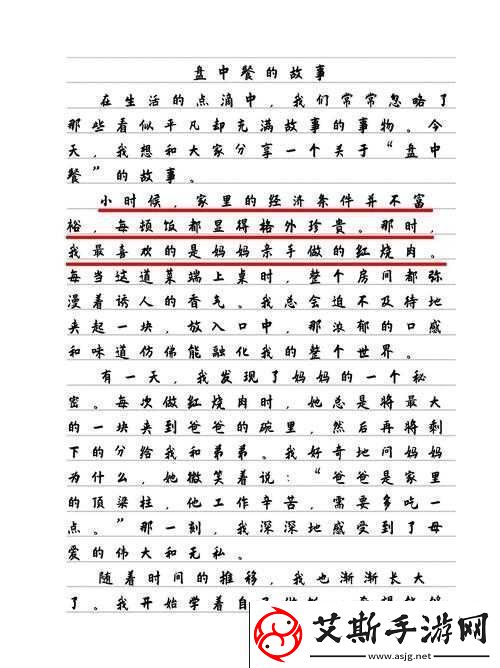 盘中餐的故事
在生活的点滴中，我们常常忽略了
那些看似平凡却充满故事的事物。今
天，我想和大家分享一个关于“盘中
餐”的故事。
小时候，家里的经济条件并不富
裕，每顿饭都显得格外珍贵。那时，
我最喜欢的是妈妈亲手做的红烧肉。
每当这道菜端上桌时，整个房间都弥
漫着诱人的香气。我总会迫不及待地
夹起一块，放入口中，那浓郁的口感
和味道仿佛能融化我的整个世界。
有一天，我发现了妈妈的一个秘
密。每次做红烧肉时，她总是将最大
的一块夹到爸爸的碗里，然后再将剩
下的分给我和弟弟。我好奇地问妈妈
为什么，她微笑着说：“爸爸是家里
的顶梁柱，他工作辛苦，需要多吃一
点。”那一刻，我深深地感受到了母
爱的伟大和无私。
随着时间的推移，我也渐渐长大
了。我开始学着自
艾斯手游网
www.asjg.net